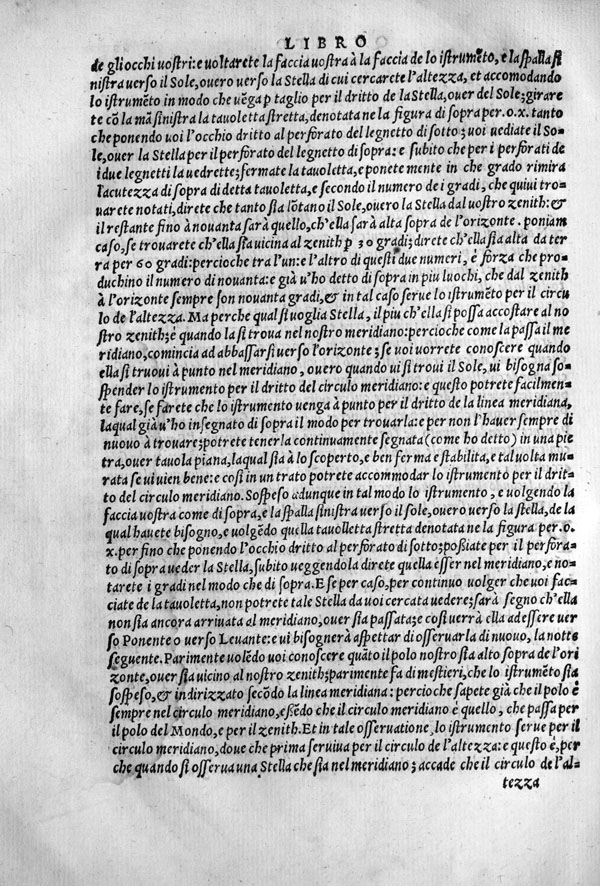 LIBRO
de gli occhi uostri: e uoltarete la faccia uostra à la faccia de lo istrumẽto, e la spalla si
nistra uerso il Sole, ouero uerso la Stella di cui cercarete l'altezza, et accomodando
lo istrumẽto in modo che uẽga p taglio per il dritto de la Stella, ouer del Sole; girare
te cõ la mã sinistra la tauoletta stretta, denotata ne la figura di sopra per. o. x. tanto
che ponendo uoi l'occhio dritto al perforato del legnetto di sotto; uoi uediate il So-
le, ouer la Stella per il perforato del legnetto di sopra: e subito che per i perforati de
i due legnetti la uedrette; fermate la tauoletta, e ponete mente in che grado rimira
l'acutezza di sopra di detta tauoletta, e secondo il numero de i gradi, che quiui tro-
uarete notati, direte che tanto sia lõtano il Sole, ouero la Stella dal uostro zenith: &
il restante fino à nouanta sarà quello, ch'ella sarà alta sopra de l'orizonte. poniam
caso, se trouarete ch'ella stia uicina al zenith p 30 gradi; direte ch'ella sia alta da ter
ra per 60 gradi: percioche tra l'un: e l'altro di questi due numeri, è forza che pro-
duchino il numero di nouanta: e già u'ho detto di sopra in piu luochi, che dal zenith
à l'orizonte sempre son nouanta gradi, & in tal caso serue lo istrumẽto per il circu
lo de l'altezza. Ma perche qual si uoglia Stella, il piu ch'ella si possa accostare al no
stro zenith; é quando la si troua nel nostro meridiano: percioche come la passa il me
ridiano, comincia ad abbassarsi uerso l'orizonte; se uoi uorrete conoscere quando
ella si truoui à punto nel meridiano, ouero quando ui si troui il Sole, ui bisogna so-
spender lo istrumento per il dritto del circulo meridiano: e questo potrete facilmen-
te fare, se farete che lo istrumento uenga à punto per il dritto de la linea meridiana,
laqual già u'ho insegnato di sopra il modo per trouarla: e per non l'hauer sempre di
nuouo à trouare; potrete tener la continuamente segnata (come ho detto) in una pie
tra, ouer tauola piana, laqual sia à lo scoperto, e ben ferma e stabilita, e tal uolta mu-
rata se ui uien bene: e cosi in un trato potrete accommodar lo istrumento per il drit-
to del circulo meridiano. Sospeso adunque in tal modo lo istrumento, e uolgendo la
faccia uostra come di sopra, e la spalla sinistra uerso il sole, ouero uerso la stella, de la
qual hauete bisogno, e uolgẽdo quella tauolletta stretta denotata ne la figura per. o.
x. per fino che ponendo l'occhio dritto al perforato di sotto; possiate per il perfora-
to di sopra ueder la Stella, subito ueggendo la direte quella esser nel meridiano, e no-
tarete i gradi nel modo che di sopra. E se per caso, per continuo uolger che uoi fac-
ciate de la tauoletta, non potrete tale Stella da uoi cercata uedere; sarà segno ch'ella
non sia ancora arriuata al meridiano, ouer sia passata; e cosi uerrà ella ad essere uer
so Ponente o uerso Leuante: e ui bisognerà aspettar di osseruarla di nuouo, la notte
seguente. Parimente uolẽdo uoi conoscere quãto il polo nostro sia alto sopra de l'ori
zonte, ouer sia uicino al nostro zenith; parimente fa di mestieri, che lo istrumẽto sia
sospeso, & indirizzato secõdo la linea meridiana: percioche sapete già che il polo é
sempre nel circulo meridiano, eßẽdo che il circulo meridiano é quello, che passa per
il polo del Mondo, e per il zenith. Et in tale osseruatione, lo istrumento serue per il
circulo meridiano, doue che prima seruiua per il circulo de l'altezza: e questo é, per
che quando si osserua una Stella che sia nel meridiano; accade che il circulo de l'al-
tezza